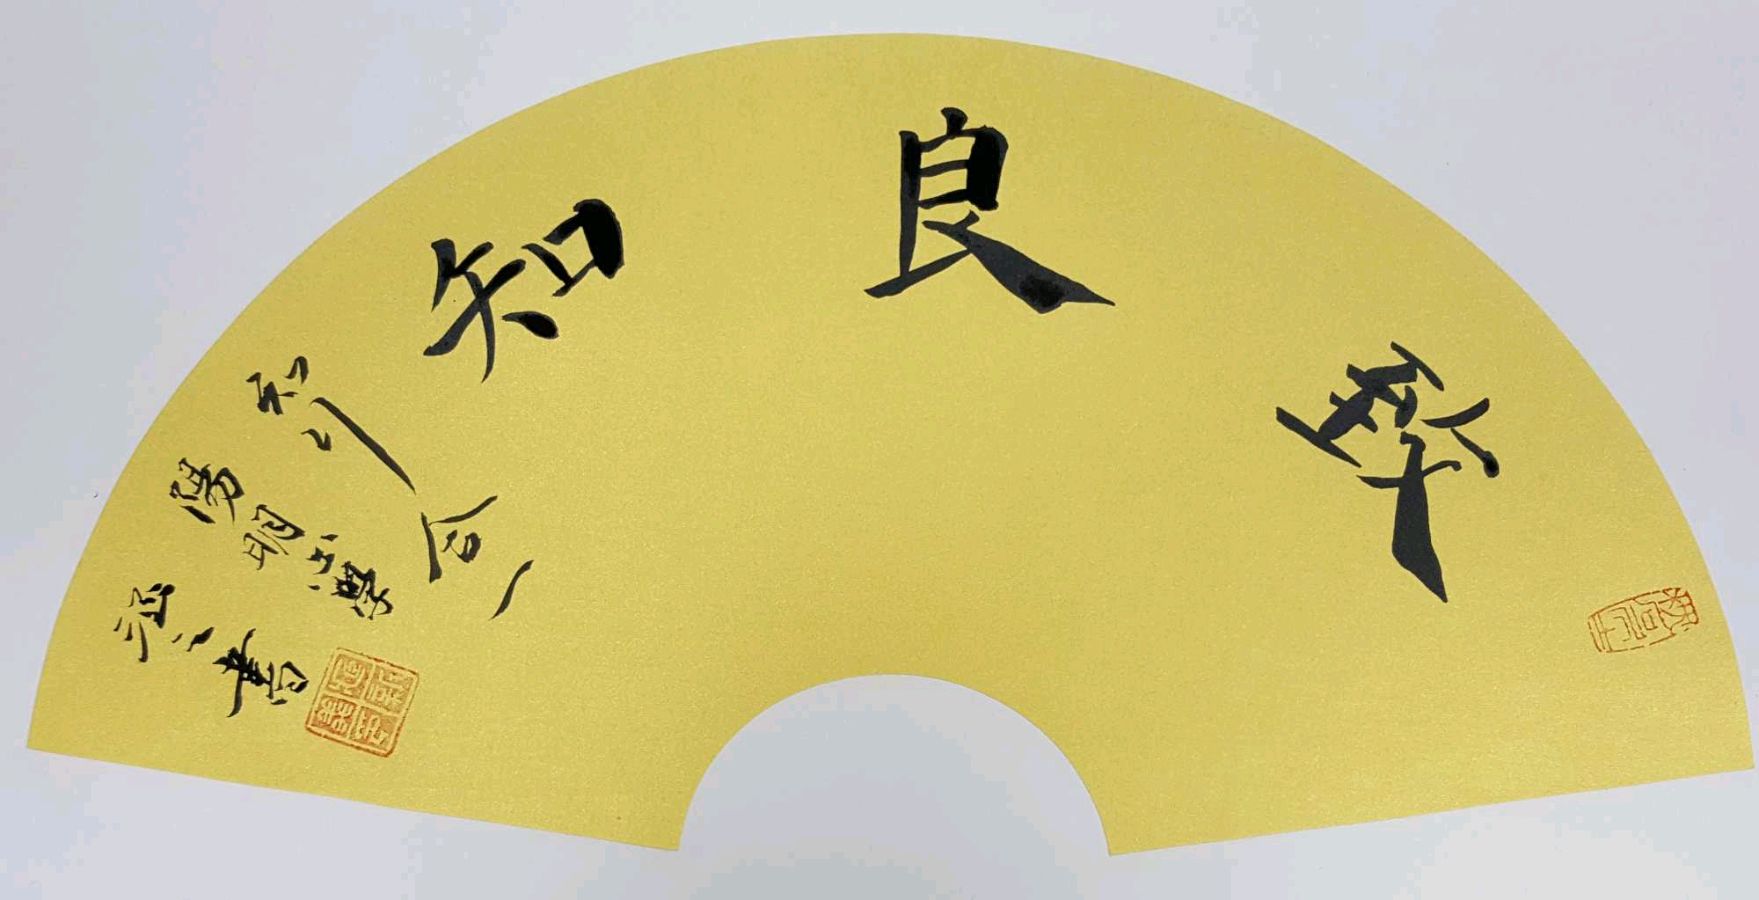 致良知
知行合一
陽明心學
之書